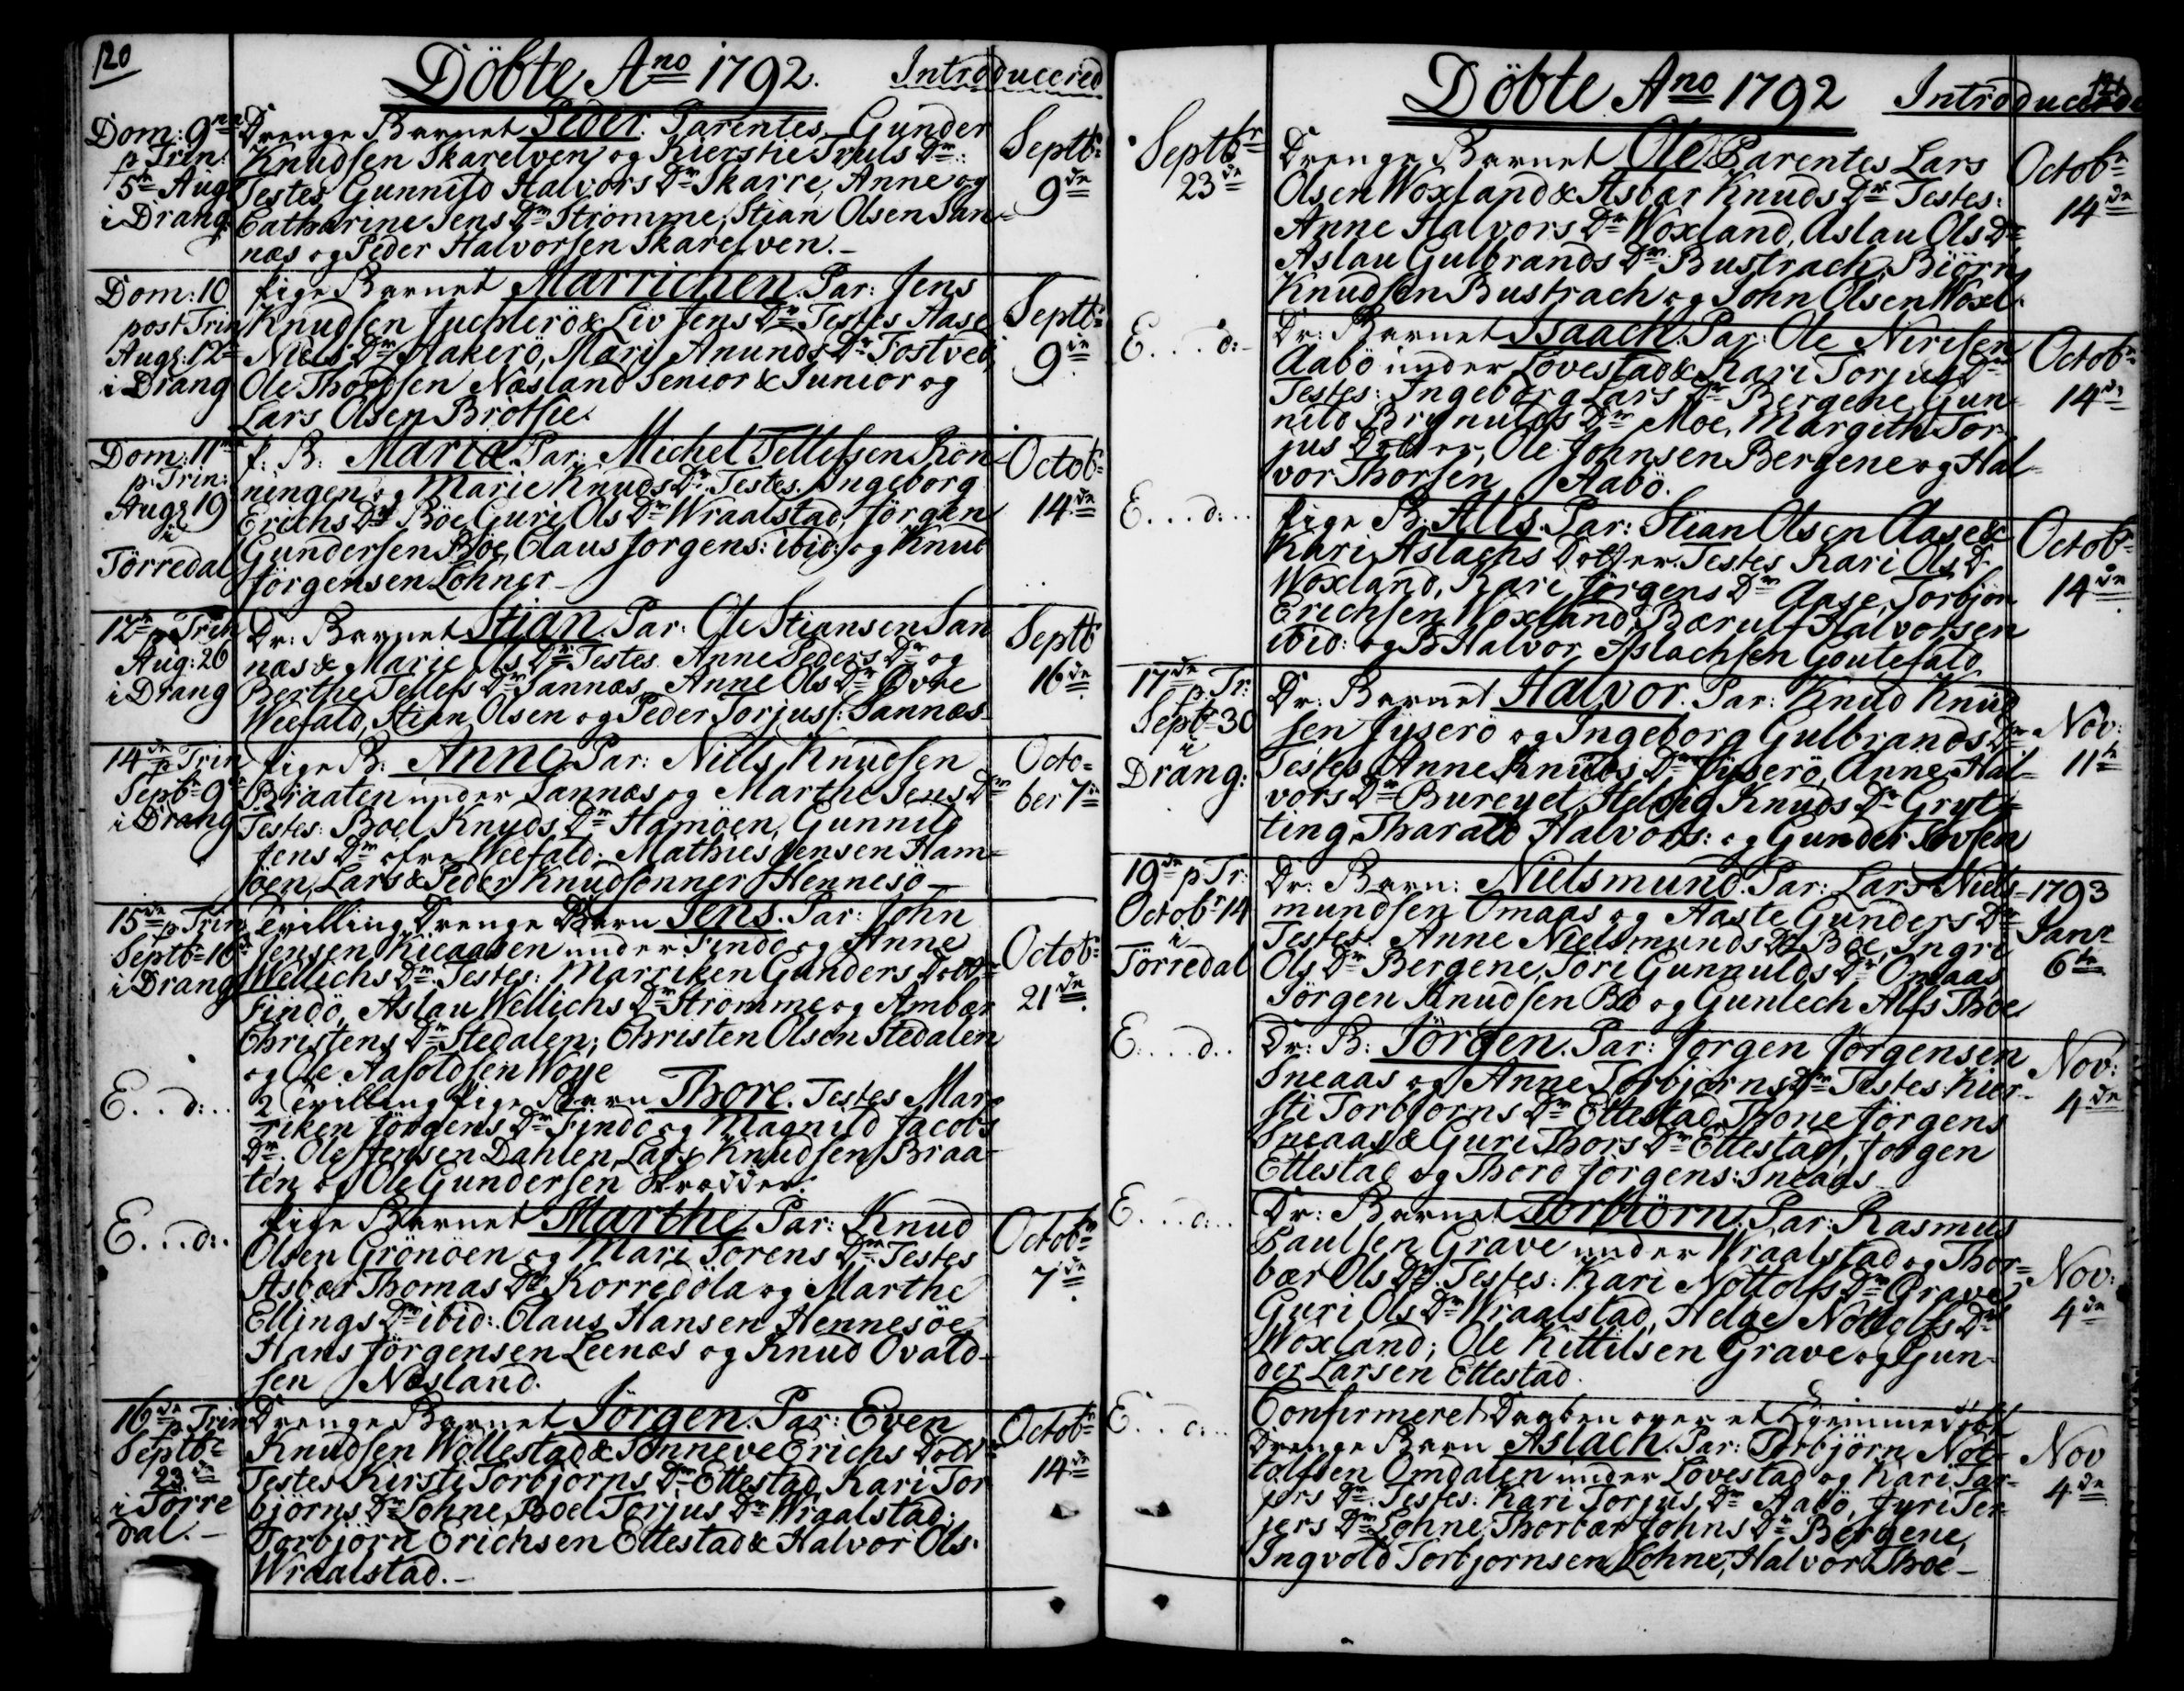 120
Döbte Ano 1792. Introducered
Dom: 9na p Trin: 5te Aug: i Drang:
Drenge Barnet Peder. Parentes Gunder
Knudsen Skarelven og Kierstie Truls Dr:
Testes Gunnild Halvors Dr Skarre, Anne og
Catharine Jens Dr Strömme, Stian Olsen San-
næs og Peder Halvorsen Skarelven.-
Septbr 9de
Dom: 10 post Trin Aug: 12te i Drang
Pige Barnet Marrichen. Par: Jens
Knudsen Juchlerö & Liv Jens Dr Testes Aase
Niels Dr Aakerö, Mari Anunds Dr Tostved,
Ole Thordsen Næsland Senior & Junior og
Lars Olsen Brötsie
Septbr 9de
Dom: 11te p: Trin: Aug: 19 i Törredal
P: B: Maria Par: Michel Tellefsen Rön-
ningen og Marie Knuds Dr. Testes. Ingeborg
Erichs Dr Böe, Guri Ols Dr Wraalstad, Jörgen
Gundersen Böe, Claus Jörgens: ibid: og Knud
Jörgensen Lohner -
Octobr 14de
12te p Trin Aug: 26 i Drang
Dr: Barnet Stian. Par: Ole Stiansen San
næs & Marie Ols Dr Testes Anne Peders Dr og
Berthe Tellefs Dr Sannæs, Anne Ols Dr Øvre
Weefald, Stian Olsen og Peder Torjuss: Sannæs-
Septbr 16de
14de p Trin Septbr 9de i Drang
Pige B: Anne. Par: Niels Knudsen
Braaten under Sannæs og Marthe Jens Dr
Testes: Boel Knuds Dr Hamöen, Gunnild
Jens Dr öfre Weefald; Mathies Jensen Ham-
öen, Lars & Peder Knudsönner Hennesö -
Octo= ber 7de
15de p Trin Septbr 16de i Drang
Tvilling Drenge Barn Jens. Par: John
Jensen Kieaasen under Findö og Anne
Wellichs Dr. Testes: Marriken Gunders Dotr
Findö, Aslau Wellichs Dr Strömme og Ambær
Christens Dr Stedalen; Christen Olsen Stedalen
og Ole Aasoldsen Woje
Octobr 21de
E. . d: . .
2 Tvilling Pige Barn Thore. Testes Mar-
riken Jörgens Dr Findö og Magnild Jacobs
Dr: Ole Jensen Dahlen, Lars Knudsen Braa-
ten og Ole Gundersen Skrædder.
E. . . d: .
Pige Barnet Marthe. Par: Knud
Olsen Grönöen og Mari Sörens Dr Testes
Asbær Thomas Dr Korredöla og Marthe
Ellings Dr ibid: Claus Hansen Hennesöe
Hans Jörgensen Leenæs og Knud Ovald-
sen Næsland.
Octobr 7de
16de p Trin Septbr 23de i Törre dal.-
Drenge Barnet Jörgen. Par: Even
Knudsen Wöllestad & Sönneve Erichs Dotr
Testes Kirsti Torbjörns Dr Ettestad, Kari Tor
björns Dr Lohne, Boel Torjus Dr Wraalstad,
Torbjörn Erichsen Ettestad & Halvor Ols:
Wraalstad.-
Octobr 14de
121
Döbte Ano 1792 Introducerede
Septbr 23de
Drenge Barnet Ole Parentes Lars
Olsen Woxland & Asbær Knuds Dr Testes:
Anne Halvors Dr Woxland, Aslau Ols Dr
Aslau Gulbrands Dr Bustrach, Biörn
Knudsen Bustrach og John Olsen Woxl.
Octobr 14de
E. . . d: -
Dr: Barnet Isaach. Par: Ole Nirisen
Aabö under Lövestad & Kari Torjus Dr
Testes: Ingeborg Lars Dr Bergene, Gun-
nild Brynulds Dr Moe, Margith Tor-
jus Dotter, Ole Johnsen Bergene og Hal-
vor Thorsen Aabö.
Octobr 14de
E. . . d: . .
Pige B: Alis. Par: Stian Olsen Aase &
Kari Aslachs Dotter. Testes Kari Ols Dr
Woxland, Kari Jörgens Dr Aase, Torbjör
Erichsen Woxland, Bærulf Halvorsen
ibid: og Halvor Aslachsen Goutefald
Octobr 14de
17de p. Tr: Septbr 30 i Drang:
Dr: Barnet Halvor. Par: Knud Knud
sen Jyserö og Ingeborg Gulbrands Dr
Testes Anne Knuds Dr Jyserö, Anne Hal-
vors Dr Bureyet, Helvig Knuds Dr Gryt-
ting, Tharald Halvors: og Gunder Tovsen
Nov: 11te
19de p Tr: Octobr 14 i Törredal
Dr: Barn: Nielsmund. Par: Lars Niels-
mundsen Omaas og Aaste Gunders Dr
Testes: Anne Nielsmunds Dr Böe, Ingri
Ols Dr Bergene, Tori Gunnulds Dr Omaas
Jörgen Knudsen Bö og Gunlech Alfs Thoe
1793 Janr 6te
E. . . d . .
Dr: B: Jörgen. Par: Jörgen Jörgensen
Sneaas og Anne Torbjörns Dr Testes: Kier-
sti Torbjörns Dr Ettestad, Thone Jörgens
Sneaas & Guri Thors Dr Ettestad, Jörgen
Ettestad og Thord Jörgens: Sneaas
Nov: 4de
E. . . d: . .
Dr: Barnet Torbiörn. Par: Rasmus
Paulsen Grave under Wraalstad og Thor-
bær Ols Dr. Testes: Kari Nottolfs Dr Grave,
Guri Ols Dr Wraalstad, Helge Nottolfs Dr
Woxland; Ole Kittilsen Grave og Gun-
der Larsen Ettestad.
Nov: 4de
E. . . d: . .
Confirmeret Daaben over et Hjemmedöbt
Drenge Barn Aslach. Par: Torbjörn Not-
tolfsen Omdalen under Lövestad og Kari Tar-
jers Dr. Testes: Kari Torjus Dr Aabö, Jyri Ter-
jers Dr Lohne, Thorbær Johns Dr Bergene,
Ingvold Torbjörnsen Lohne, Halvor Thoe -
Nov 4de